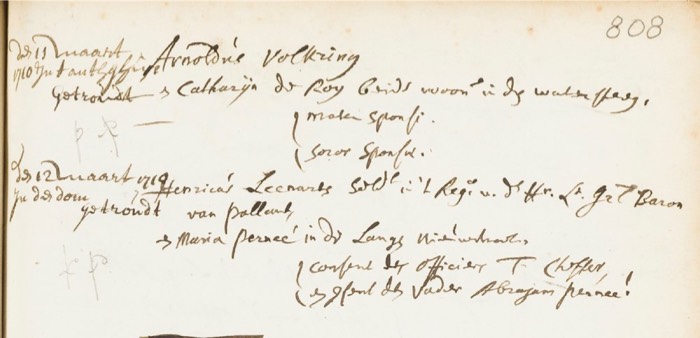 808
den 13 maart
1710 Int anth. ghuse
getroudt
Arnoldus Volkring
en Catharijn de Roy beids woont in de watersteeg,
mater sponsi.
soror sponsæ.
den 12 maart 1710
In de dom
getroudt
Henricus Leenarts Soldt in 't Regt v. dh Hr. Lt. Grl Baron
van pallant,
en Maria Perneé in de Lange Nieuwstraat.
consent des officiers T.
en consent des Vader Abraham perneé.